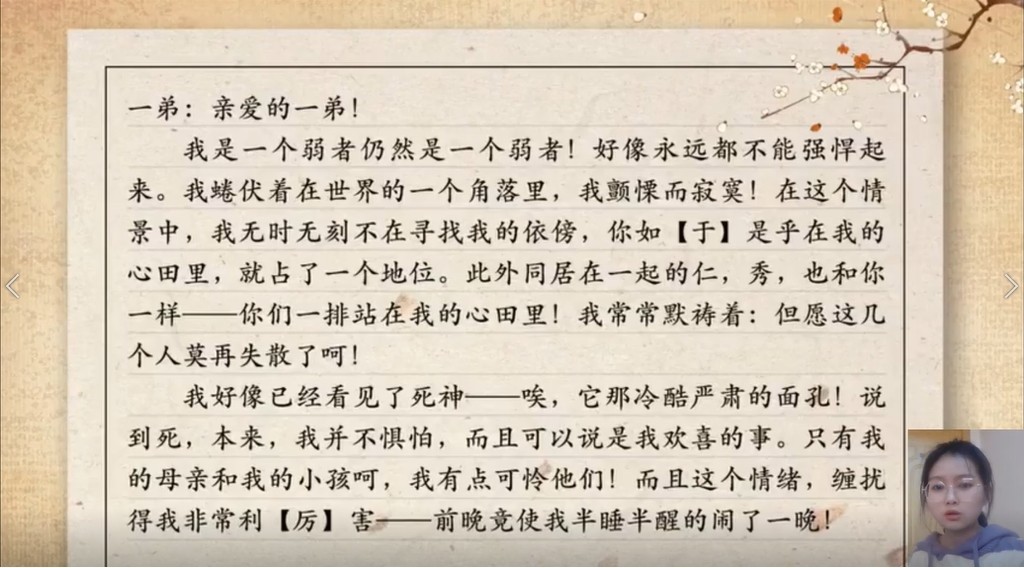 一弟：亲爱的一弟！
我是一个弱者仍然是一个弱者！好像永远都不能强悍起
来。我蜷伏着在世界的一个角落里，我颤慄而寂寞！在这个情
景中，我无时无刻不在寻找我的依傍，你如【于】是乎在我的
心田里，就占了一个地位。此外同居在一起的仁，秀，也和你
一样——你们一排站在我的心田里！我常常默祷着：但愿这几
个人莫再失散了呵！
我好像已经看见了死神——唉，它那冷酷严肃的面孔！说
到死，本来，我并不惧怕，而且可以说是我欢喜的事。只有我
的母亲和我的小孩呵，我有点可怜他们！而且这个情绪，缠扰
得我非常利【厉】害——前晚竟使我半睡半醒的闹了一晚！